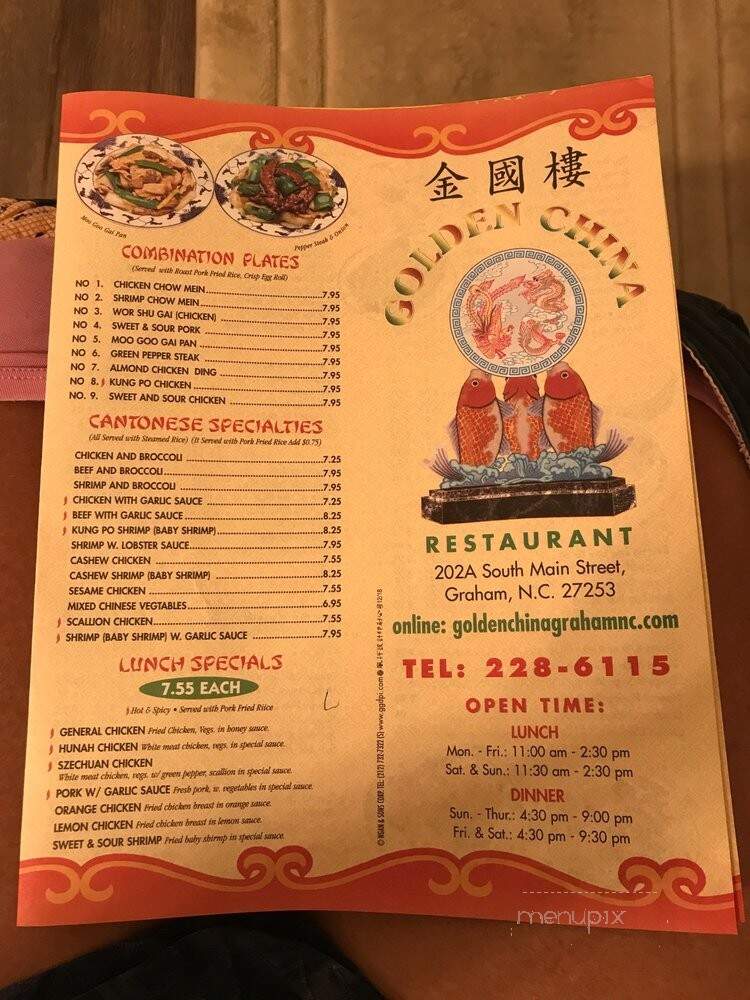 Moo Goo Gai Pan
Pepper Steak & Onion
COMBINATION PLATES
(Served with Roast Pork Fried Rice, Crisp Egg Roll)
NO 1. CHICKEN CHOW MEIN 7.95
NO 2. SHRIMP CHOW MEIN 7.95
NO 3. WOR SHU GAI (CHICKEN) 7.95
NO 4. SWEET & SOUR PORK 7.95
NO 5. MOO GOO GAI PAN 7.95
NO 6. GREEN PEPPER STEAK 7.95
NO 7. ALMOND CHICKEN DING 7.95
NO 8. KUNG PO CHICKEN 7.95
NO. 9. SWEET AND SOUR CHICKEN 7.95
CANTONESE SPECIALTIES
(All Served with Steamed Rice) (It Served with Pork Fried Rice Add $0.75)
CHICKEN AND BROCCOLI 7.25
BEEF AND BROCCOLI 7.95
SHRIMP AND BROCCOLI 7.95
CHICKEN WITH GARLIC SAUCE 7.25
BEEF WITH GARLIC SAUCE 8.25
KUNG PO SHRIMP (BABY SHRIMP) 8.25
SHRIMP W. LOBSTER SAUCE 7.95
CASHEW CHICKEN 7.55
CASHEW SHRIMP (BABY SHRIMP) 8.25
SESAME CHICKEN 7.55
MIXED CHINESE VEGTABLES 6.95
SCALLION CHICKEN 7.55
SHRIMP (BABY SHRIMP) W. GARLIC SAUCE 7.95
LUNCH SPECIALS
7.55 EACH
Hot & Spicy • Served with Pork Fried Riice
GENERAL CHICKEN Fried Chicken, Vegs. in honey sauce.
HUNAH CHICKEN White meat chicken, vegs. in special sauce.
SZECHUAN CHICKEN
White meat chicken, vegs. w/ green pepper, scallion in special sauce.
PORK W/ GARLIC SAUCE Fresh pork, w. vegetables in special sauce.
ORANGE CHICKEN Fried chicken breast in orange sauce.
LEMON CHICKEN Fried chicken breast in lemon sauce.
SWEET & SOUR SHRIMP Fried baby shirmp in special sauce.
© NGAN & SONS CORP. TEL: (212) 732-7322 (S) www.ggdpi.com 12/18
金國樓
GOLDEN CHINA
RESTAURANT
202A South Main Street,
Graham, N.C. 27253
online: goldenchinagrahamnc.com
TEL: 228-6115
OPEN TIME:
LUNCH
Mon. - Fri.: 11:00 am - 2:30 pm
Sat. & Sun.: 11:30 am - 2:30 pm
DINNER
Sun. - Thur.: 4:30 pm - 9:00 pm
Fri. & Sat.: 4:30 pm - 9:30 pm
menupix